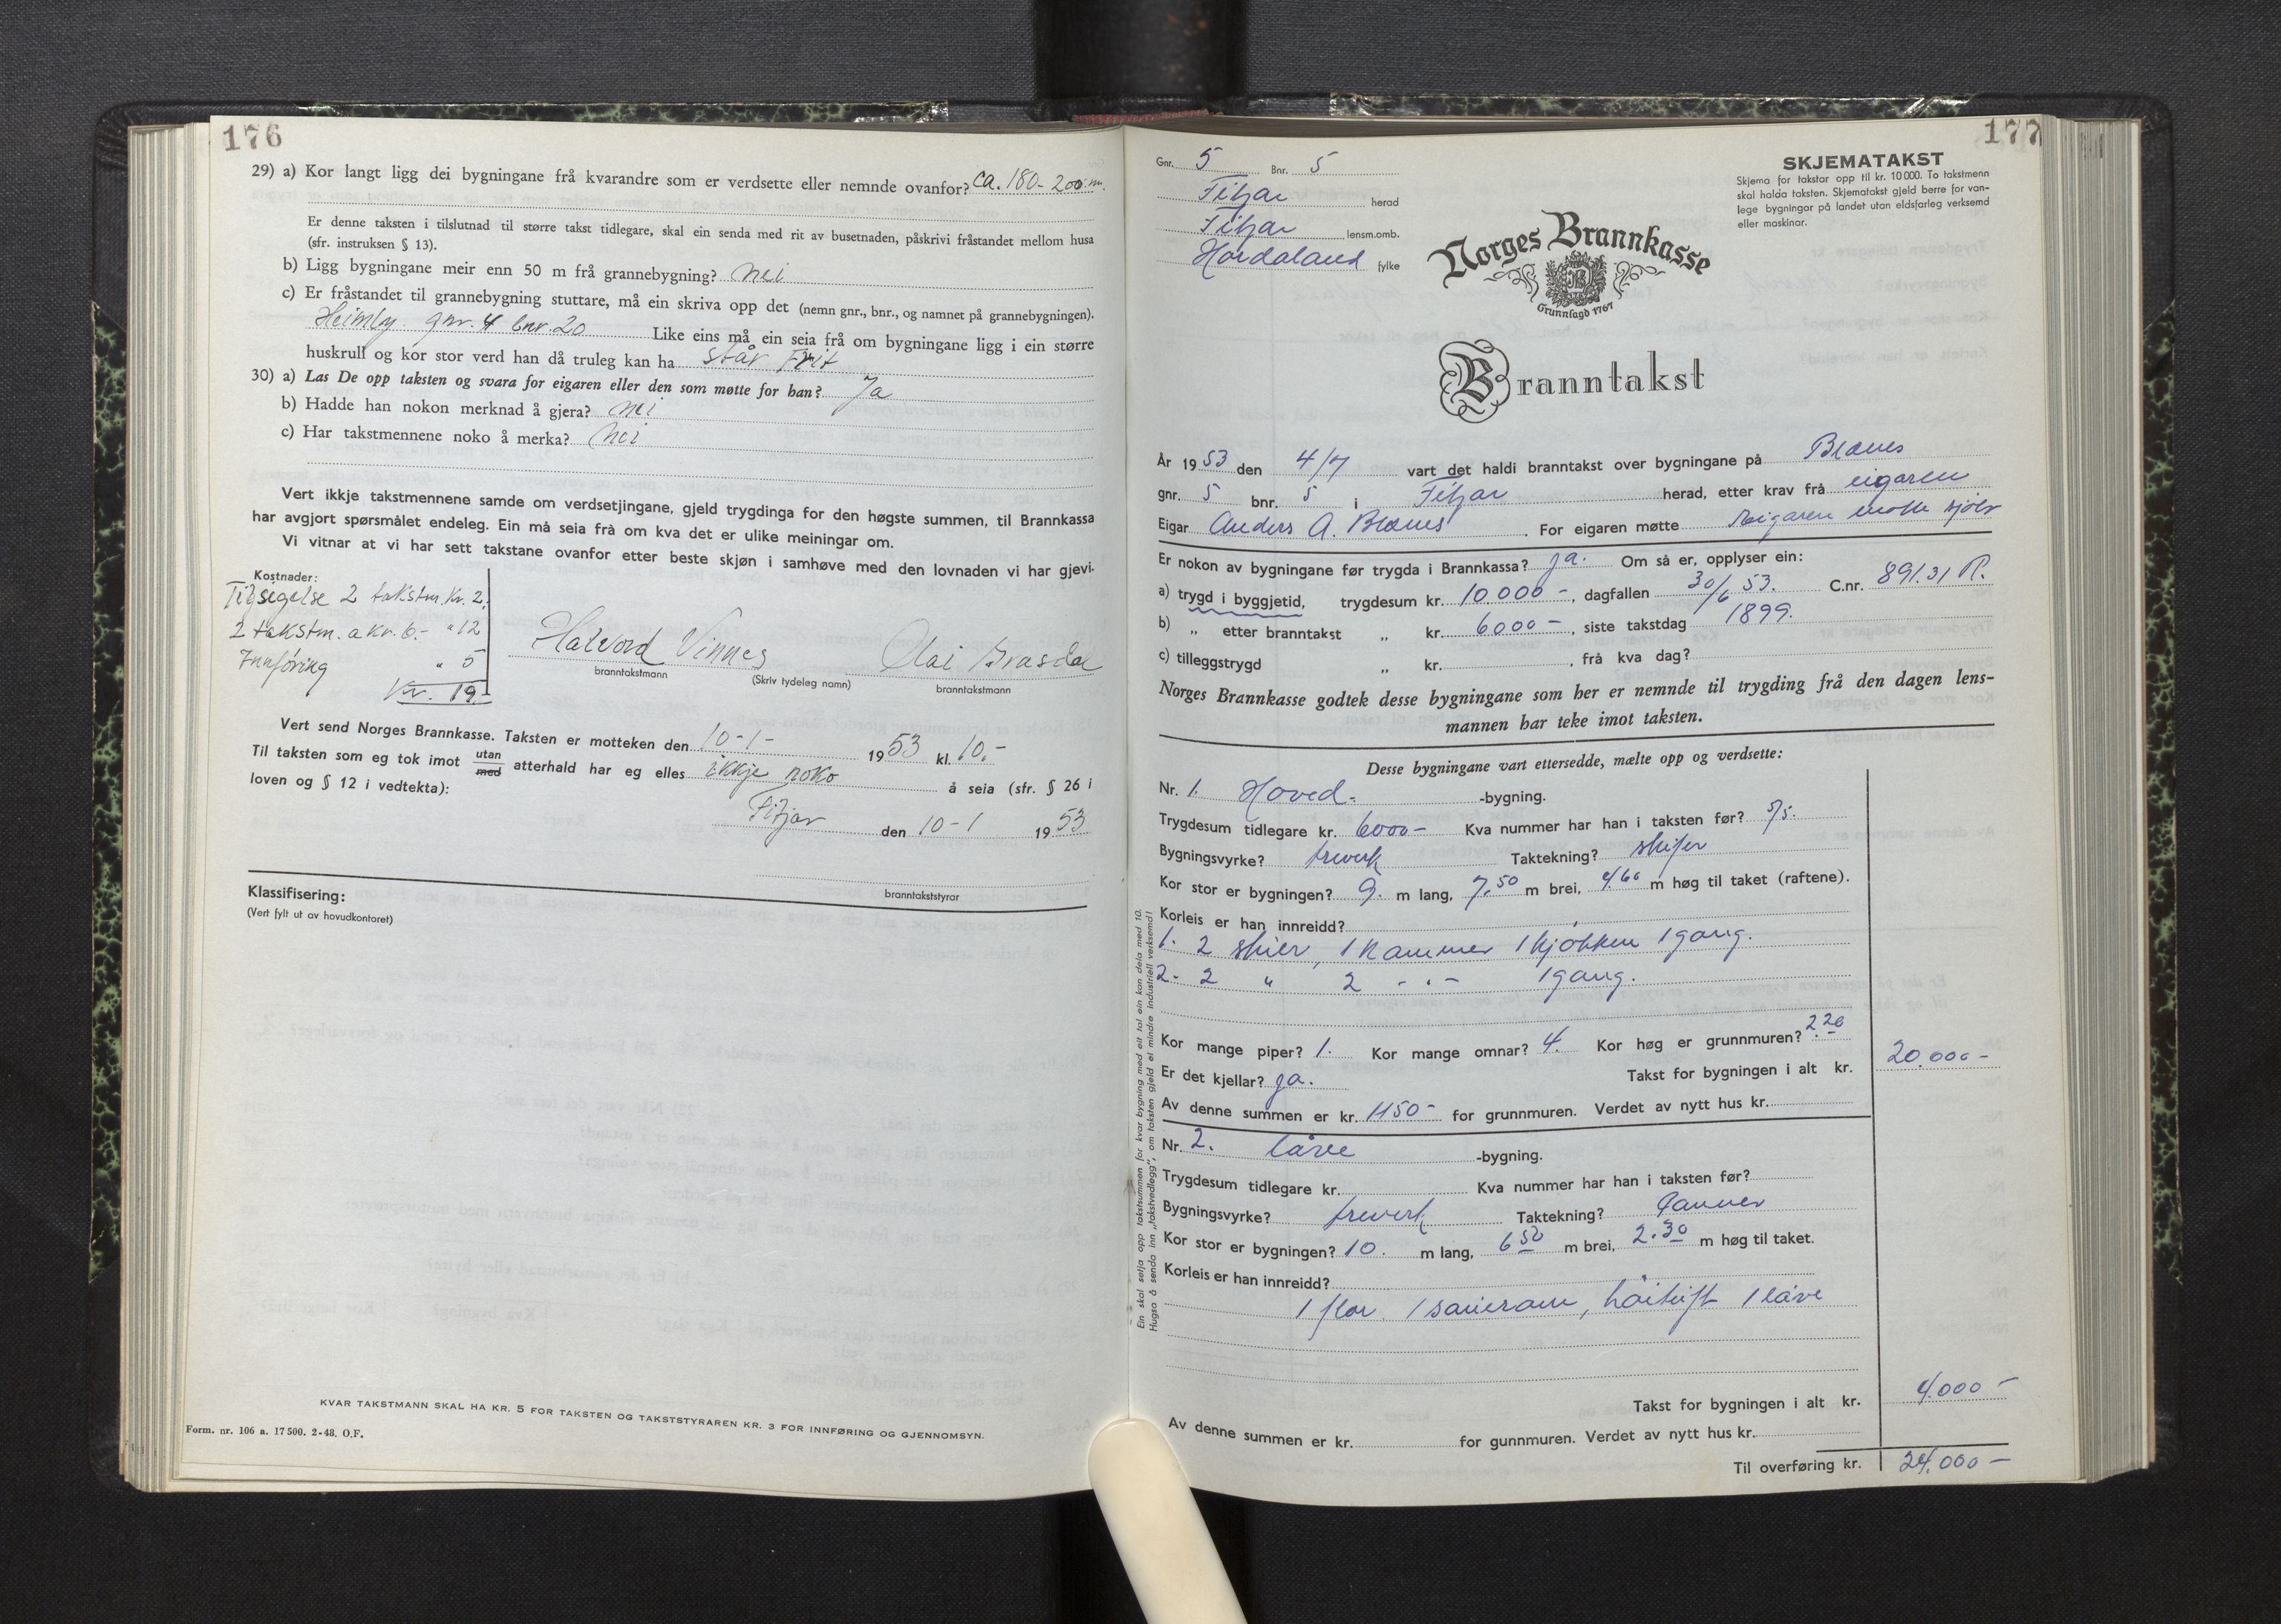 176
29) a) Kor langt ligg dei bygningane frå kvarandre som er verdsette eller nemnde ovanfor? ca. 180-200.m.
Er denne taksten i tilslutnad til større takst tidlegare, skal ein senda med rit av busetnaden, påskrivi fråstandet mellom husa
(sfr. instruksen § 13).
b) Ligg bygningane meir enn 50 m frå grannebygning? nei
c) Er fråstandet til grannebygning stuttare, må ein skriva opp det (nemn gnr., bnr., og namnet på grannebygningen).
Heimly gnr. 4 bnr. 20 Like eins må ein seia frå om bygningane ligg i ein større
huskrull og kor stor verd han då truleg kan ha står Frit
30) a) Las De opp taksten og svara for eigaren eller den som møtte for han? Ja
b) Hadde han nokon merknad å gjera? nei
c) Har takstmennene noko å merka? nei
Vert ikkje takstmennene samde om verdsetjingane, gjeld trygdinga for den høgste summen, til Brannkassa
har avgjort spørsmålet endeleg. Ein må seia frå om kva det er ulike meiningar om.
Vi vitnar at vi har sett takstane ovanfor etter beste skjøn i samhøve med den lovnaden vi har gjevi.
Kostnader:
Tilsegelse 2 takstm. Kr. 2.
2 takstm. a kr. 6.- " 12
Innföring " 5
Kr. 19
Halvord Vinnes
branntakstmann (Skriv tydeleg namn) branntakstmann
Vert send Norges Brannkasse. Taksten er motteken den 10-1- 1953 kl. 10.-
Til taksten som eg tok imot utan med atterhald har eg elles ikkje noko å seia (sfr. § 26 i
loven og § 12 i vedtekta):
Fitjar den 10-1 1953
branntakststyrar
Klassifisering:
(Vert fylt ut av hovudkontoret)
KVAR TAKSTMANN SKAL HA KR. 5 FOR TAKSTEN OG TAKSTSTYRAREN KR. 3 FOR INNFØRING OG GJENNOMSYN.
Form. nr. 106 a. 17 500. 2-48. O.F.
177
Gnr. 5 Bnr. 5
Fitjar herad
Fitjar lensm.omb.
Hordaland fylke
SKJEMATAKST
Skjema for takstar opp til kr. 10 000. To takstmenn
skal halda taksten. Skjematakst gjeld berre for van-
lege bygningar på landet utan eldsfarleg verksemd
eller maskinar.
Norges Brannkasse
Grunnlagd 1767
Branntakst
År 1953 den 4/7 vart det haldi branntakst over bygningane på Blænes
gnr. 5 bnr. 5 i Fitjar herad, etter krav frå eigaren
Eigar Anders A. Blænes. For eigaren møtte Eigaren møtte sjölv
Er nokon av bygningane før trygda i Brannkassa? ja. Om så er, opplyser ein:
a) trygd i byggjetid, trygdesum kr. 10.000 -, dagfallen 30/6 53. C.nr. 891.31 R.
b) „ etter branntakst „ kr. 6000 -, siste takstdag 1899.
c) tilleggstrygd „ kr. , frå kva dag?
Norges Brannkasse godtek desse bygningane som her er nemnde til trygding frå den dagen lens-
mannen har teke imot taksten.
Desse bygningane vart ettersedde, mælte opp og verdsette:
Nr. 1. Hoved- -bygning.
Trygdesum tidlegare kr. 6000- Kva nummer har han i taksten før? 5/5.
Bygningsvyrke? treverk Taktekning? skifer
Kor stor er bygningen? 9. m lang, 7,50 m brei, 4,60 m høg til taket (raftene).
Korleis er han innreidd?
1. 2 stuer, 1 kammer 1 kjökken 1 gang.
2. 2 " 2 - " - 1 gang.
Kor mange piper? 1. Kor mange omnar? 4. Kor høg er grunnmuren? 2.20
Er det kjellar? ja. Takst for bygningen i alt kr. 20.000 -
Av denne summen er kr. 1150- for grunnmuren. Verdet av nytt hus kr.
Nr. 2. Låve -bygning.
Trygdesum tidlegare kr. Kva nummer har han i taksten før?
Bygningsvyrke? treverk Taktekning? Panner
Kor stor er bygningen? 10. m lang, 6 50 m brei, 2.30 m høg til taket.
Korleis er han innreidd?
1 flor. 1 låve
Takst for bygningen i alt kr. 4.000 -
Av denne summen er kr. for gunnmuren. Verdet av nytt hus kr.
Til overføring kr. 24.000 -
Ein skal setja opp takstsummen for kvar bygning med eit tal ein kan dela med 10.
Hugsa å senda inn „takstvedlegg", om taksten gjeld ei mindre industriell verksemd!